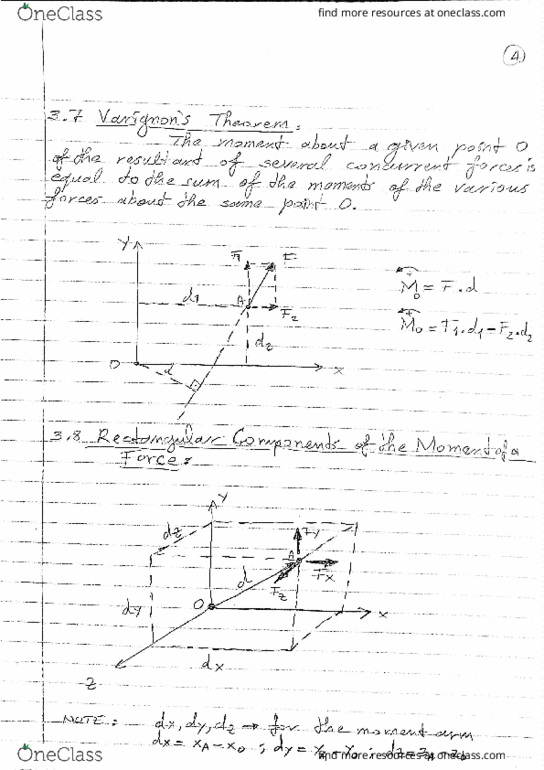 OneClass
find more resources at oneclass.com
4
3.7 Varignon's Theorem.
The moment about a given point O
of the resultant of several concurrent forces is
equal to the sum of the moments of the various
forces about the same point O.
Y
F1 F
d1 A F2
d2
O d x
Mo = F.d
Mo = F1.d1 - F2.d2
3.8 Rectangular Components of the Moment of a
Force:
Y
dz Fy
A
d Fx
Fz
dy O x
dx
Z
NOTE: dx, dy, dz → for the moment arm
dx = xA - xO ; dy = yA - yO ;
OneClass
find more resources at oneclass.com